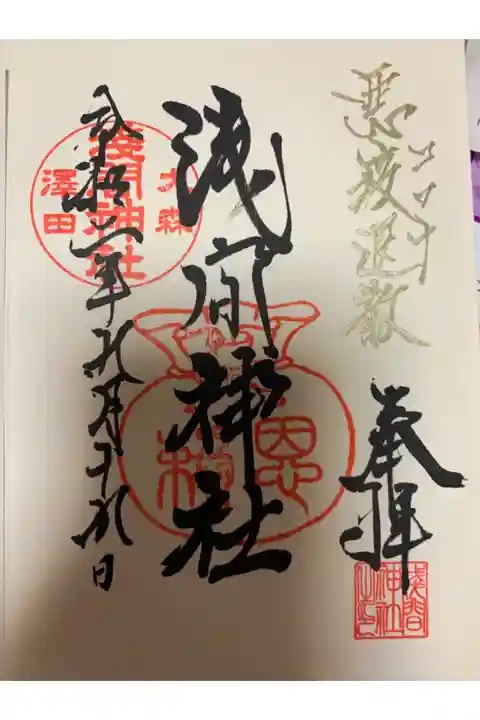 悪疫退散
コロナ
奉拝
浅間神社之印
浅間神社
恩
大森
浅間神社
澤田
令和二年九月十九日